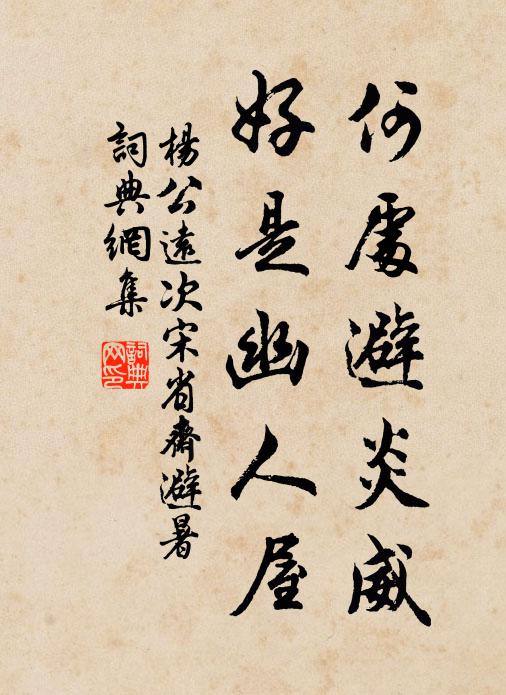 何處避炎威
好是幽人屋
楊公遠次宋省齋避暑
詞典網集
詞典网印